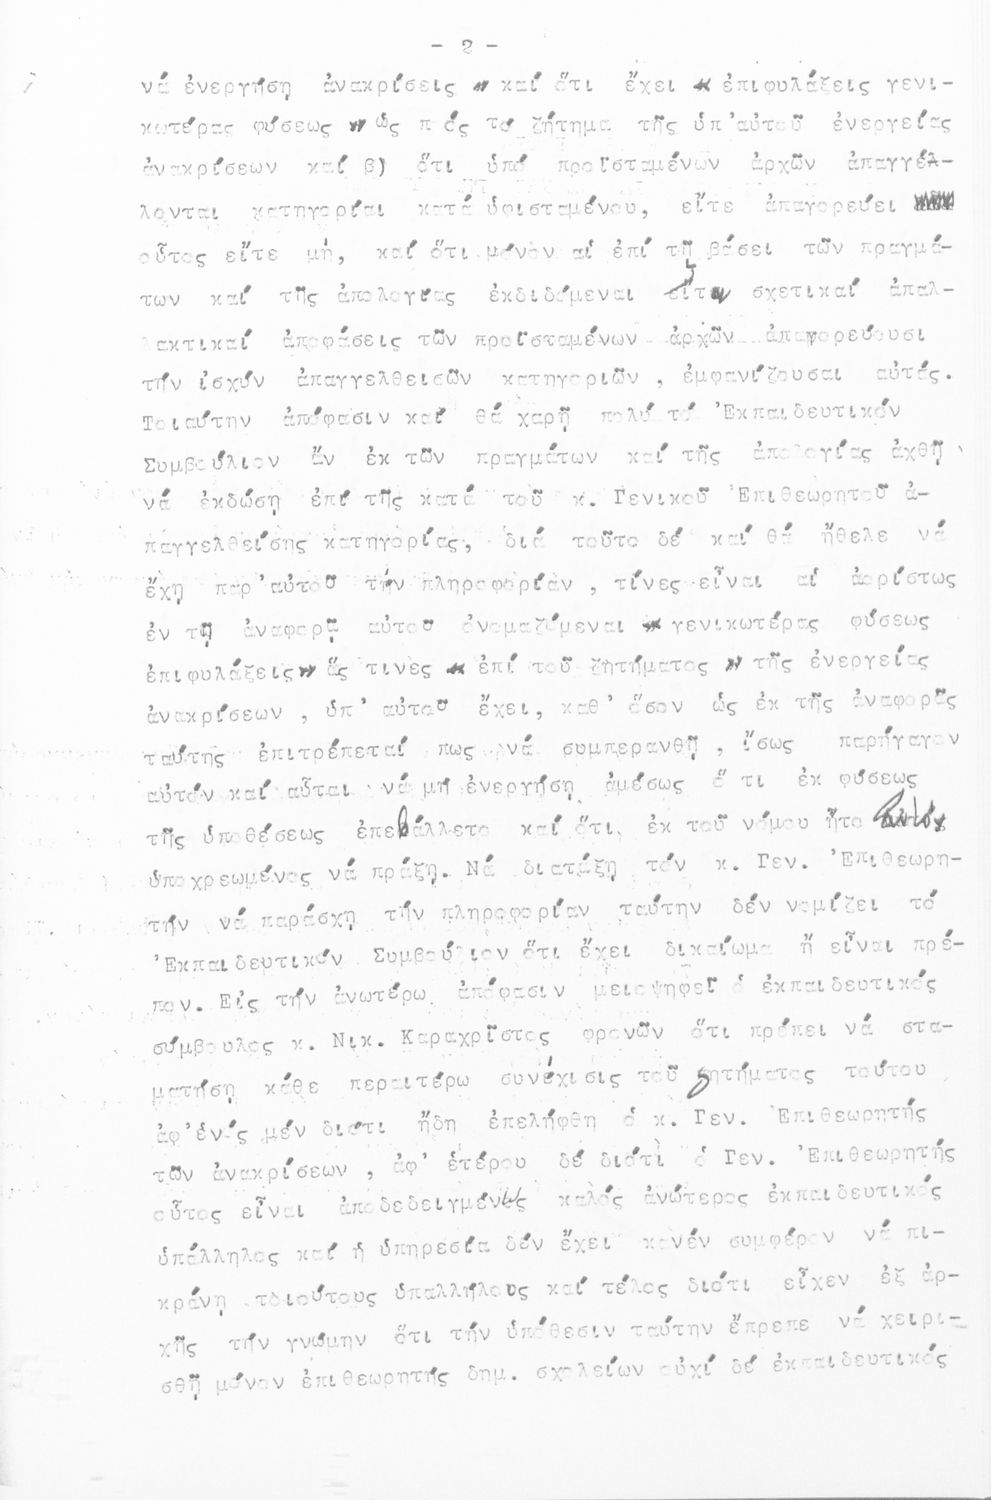 - 2 -
νά ἐνεργήση ἀνακρίσεις " καί ὅτι ἔχει « ἐπιφυλάξεις γενι-
κωτέρας φύσεως " ὡς πρός τό ζήτημα τῆς ὑπ'αὐτοῦ ἐνεργείας
ἀνακρίσεων καί β) ὅτι ὑπό προϊσταμένων ἀρχῶν ἀπαγγέλ-
λονται κατηγορίαι κατά ὑφισταμένου, εἴτε ἀπαγορεύει
οὗτος εἴτε μή, καί ὅτι μόνον αἱ ἐπί τῇ βάσει τῶν πραγμά-
των καί τῆς ἀπολογίας ἐκδιδόμεναι σχετικαί ἀπαλ-
λακτικαί ἀποφάσεις τῶν προϊσταμένων ἀρχῶν ἀπαγορεύουσι
τήν ἰσχύν ἀπαγγελθεισῶν κατηγοριῶν , ἐμφανίζουσαι αὐτάς.
Τοιαύτην ἀπόφασιν καί θά χαρῇ πολύ τό 'Εκπαιδευτικόν
Συμβούλιον ἄν ἐκ τῶν πραγμάτων καί τῆς ἀπολογίας ἀχθῇ
νά ἐκδώση ἐπί τῆς κατά τοῦ κ. Γενικοῦ 'Επιθεωρητοῦ ἀ-
παγγελθείσης κατηγορίας, διά τοῦτο δέ καί θά ἤθελε νά
ἔχη παρ'αὐτοῦ τήν πληροφορίαν , τίνες εἶναι αἱ ἀορίστως
ἐν τῇ ἀναφορᾷ αὐτοῦ ὀνομαζόμεναι « γενικωτέρας φύσεως
ἐπιφυλάξεις» ἅς τινες « ἐπί τοῦ ζητήματος » τῆς ἐνεργείας
ἀνακρίσεων , ὑπ' αὐτοῦ ἔχει, καθ' ὅσον ὡς ἐκ τῆς ἀναφορᾶς
ταύτης ἐπιτρέπεταί πως νά συμπερανθῇ , ἴσως παρήγαγον
αὐτόν καί αὗται νά μή ἐνεργήση ἀμέσως ὅ τι ἐκ φύσεως
τῆς ὑποθέσεως ἐπεβάλλετο καί ὅτι ἐκ τοῦ νόμου ἦτο
ὑποχρεωμένος νά πράξη. Νά διατάξη τόν κ. Γεν. 'Επιθεωρη-
τήν νά παράσχη τήν πληροφορίαν ταύτην δέν νομίζει τό
'Εκπαιδευτικόν Συμβούλιον ὅτι ἔχει δικαίωμα ἤ εἶναι πρέ-
πον. Εἰς τήν ἀνωτέρω ἀπόφασιν μειοψηφεῖ ὁ ἐκπαιδευτικός
σύμβουλος κ. Νικ. Καραχρῖστος φρονῶν ὅτι πρέπει νά στα-
ματήση κάθε περαιτέρω συνέχισις τοῦ ζητήματος τούτου
ἀφ'ἑνός μέν διότι ἤδη ἐπελήφθη ὁ κ. Γεν. 'Επιθεωρητής
τῶν ἀνακρίσεων , ἀφ' ἑτέρου δέ διότι ὁ Γεν. 'Επιθεωρητής
οὗτος εἶναι ἀποδεδειγμένως καλός ἀνώτερος ἐκπαιδευτικός
ὑπάλληλος καί ἡ ὑπηρεσία δέν ἔχει κανέν συμφέρον νά πι-
κράνη τοιούτους ὑπαλλήλους καί τέλος διότι εἶχεν ἐξ ἀρ-
χῆς τήν γνώμην ὅτι τήν ὑπόθεσιν ταύτην ἔπρεπε νά χειρι-
σθῇ μόνον ἐπιθεωρητής δημ. σχολείων οὐχί δέ ἐκπαιδευτικός